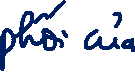 phôi của